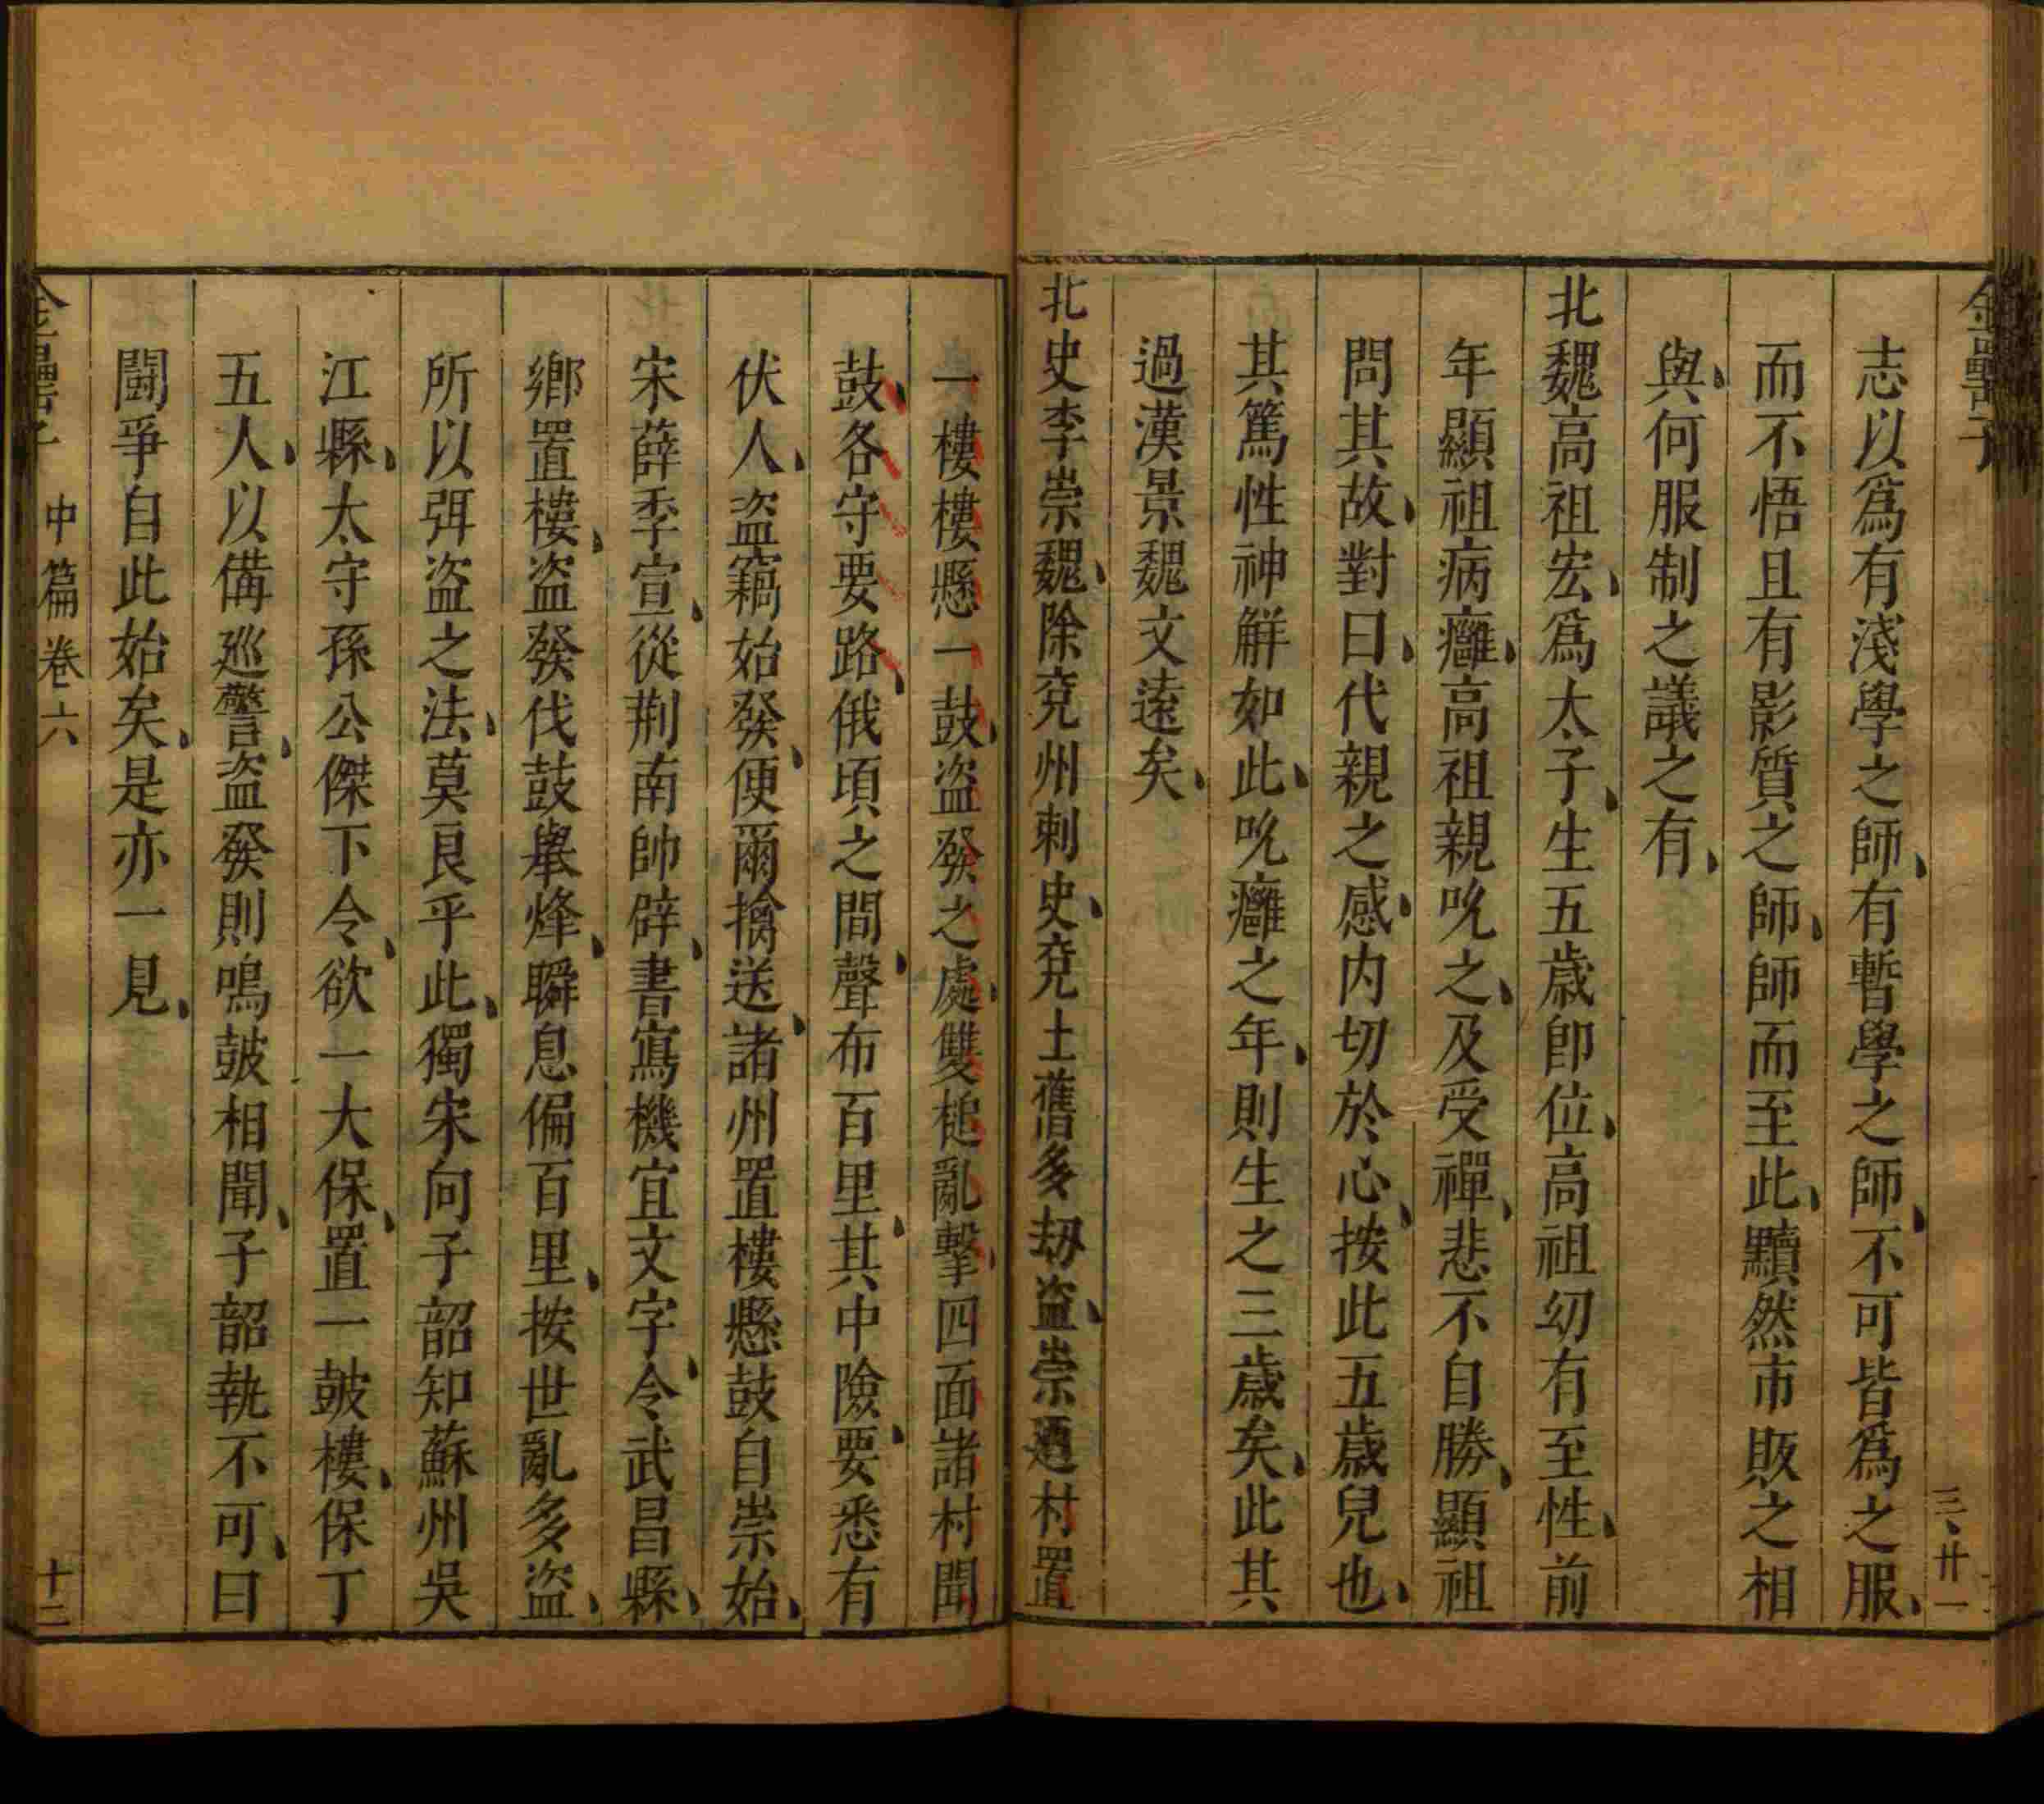 金罍子
三、廿一
志以爲有淺學之師、有暫學之師、不可皆爲之服、
而不悟且有影質之師、師而至此、黷然市販之相
與、何服制之議之有、
北魏高祖宏、爲太子、生五歲卽位、高祖幼有至性、前
年顯祖病癰、高祖親吮之、及受禪、悲不自勝、顯祖
問其故、對曰、代親之感、内切於心、按此五歲兒也、
其篤性神解如此、吮癰之年、則生之三歲矣、此其
過漢景魏文遠矣、
北史李崇魏、除兗州刺史、兗土舊多劫盜、崇廼村置
一樓樓懸一鼓、盜發之處、雙槌亂擊、四面諸村聞
鼓、各守要路、俄頃之間、聲布百里、其中險要、悉有
伏人、盜竊始發、便爾擒送、諸州置樓懸鼓自崇始、
宋薛季宣、從荆南帥辟、書寫機宜文字、令武昌縣、
鄉置樓、盜發伐鼓舉烽、瞬息徧百里、按世亂多盜、
所以弭盜之法、莫良乎此、獨宋向子韶知蘇州吳
江縣、太守孫公傑下令、欲一大保、置一皷樓、保丁
五人、以備廵警、盜發則鳴皷相聞、子韶執不可、曰
鬪爭自此始矣、是亦一見、
金罍子
中篇卷六
十二